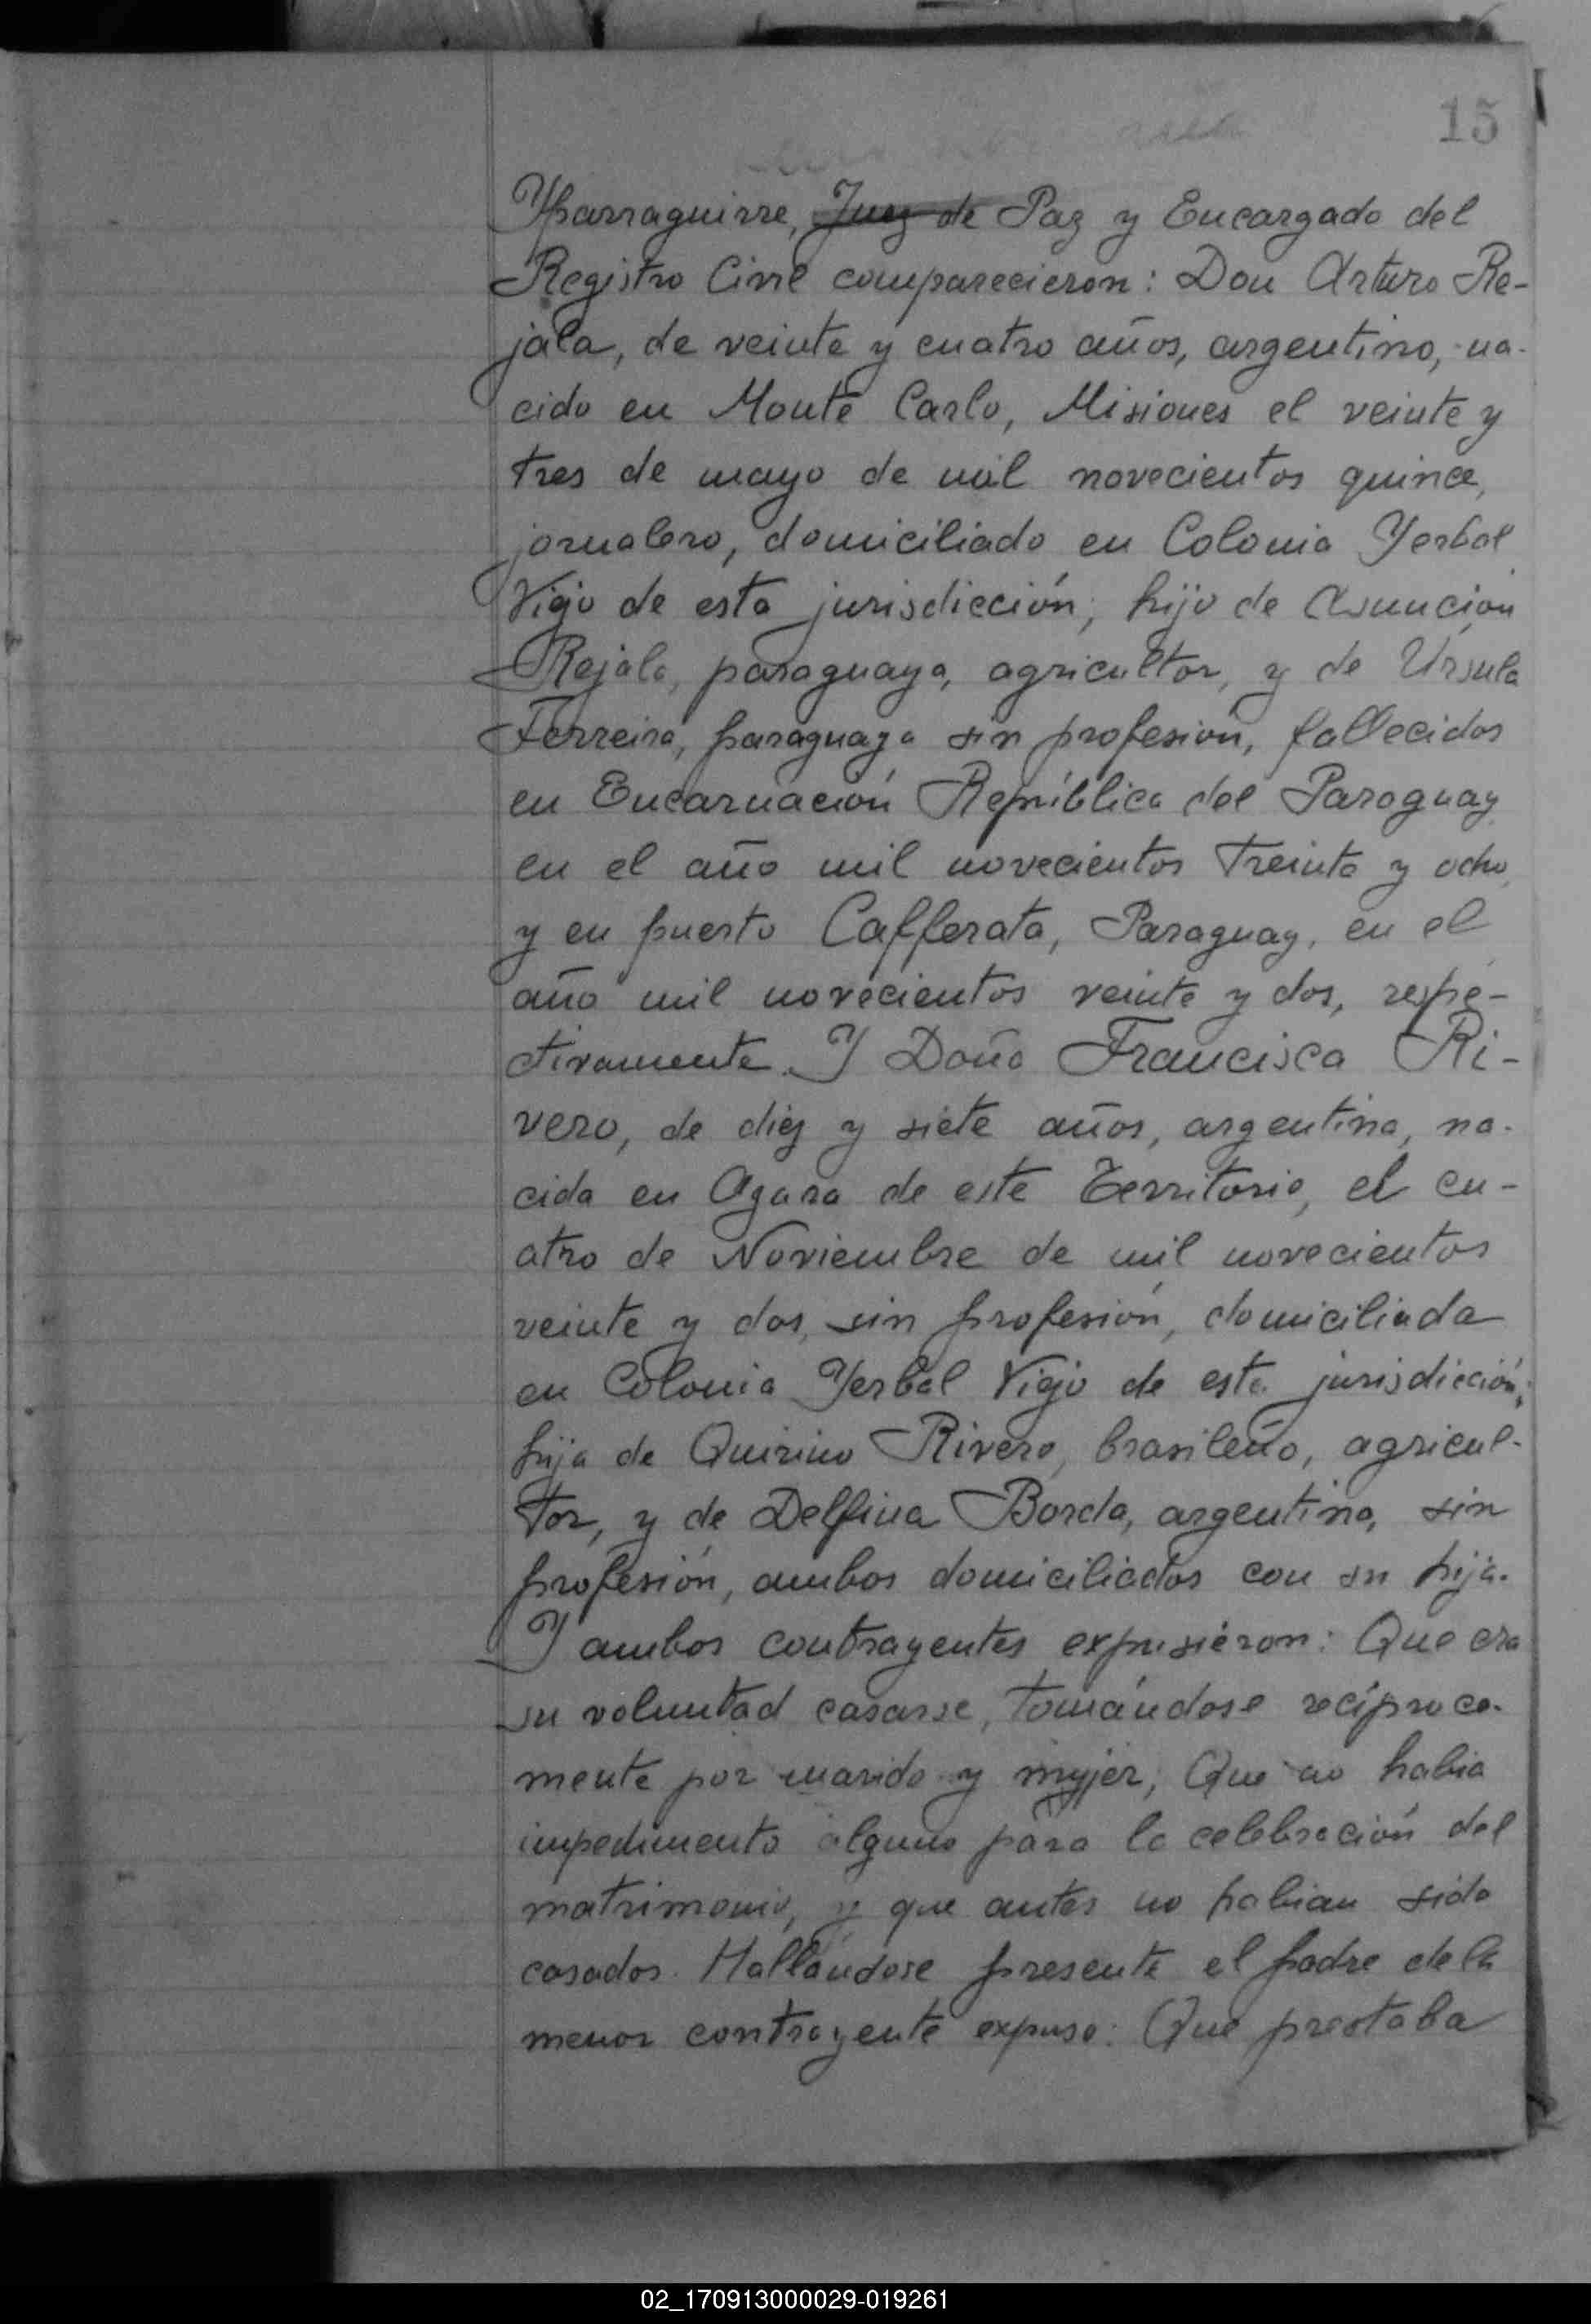 15
Yparraguirre, Juez de Paz y Encargado del
Registro Civil comparecieron: Don Arturo Re-
jala, de veinte y cuatro años, argentino, na-
cido en Monte Carlo, Misiones el veinte y
tres de mayo de mil novecientos quince,
jornalero, domiciliado en Colonia Yerbal
Viejo de esta jurisdicción; hijo de Asunción
Rejala, paraguayo, agricultor, y de Úrsula
Ferreira, paraguaya sin profesión, fallecidos
en Encarnación República del Paraguay
en el año mil novecientos treinta y ocho
y en puerto Cafferata, Paraguay, en el
año mil novecientos veinte y dos, respe-
ctivamente. Y Doña Francisca Ri-
vero, de diez y siete años, argentina, na-
cida en Azara de este Territorio, el cu-
atro de Noviembre de mil novecientos
veinte y dos, sin profesión, domiciliada
en Colonia Yerbal Viejo de esta jurisdicción;
hija de Quirino Rivero, brasileño, agricul-
tor, y de Delfina Borda, argentina, sin
profesión, ambos domiciliados con su hija.
Y ambos contrayentes expusieron: Que era
su voluntad casarse, tomándose recíproca-
mente por marido y mujer; Que no habia
impedimento alguno para la celebración del
matrimonio, y que antes no habian sido
casados. Hallándose presente el padre de la
menor contrayente expuso: Que prestaba
02_170913000029-019261